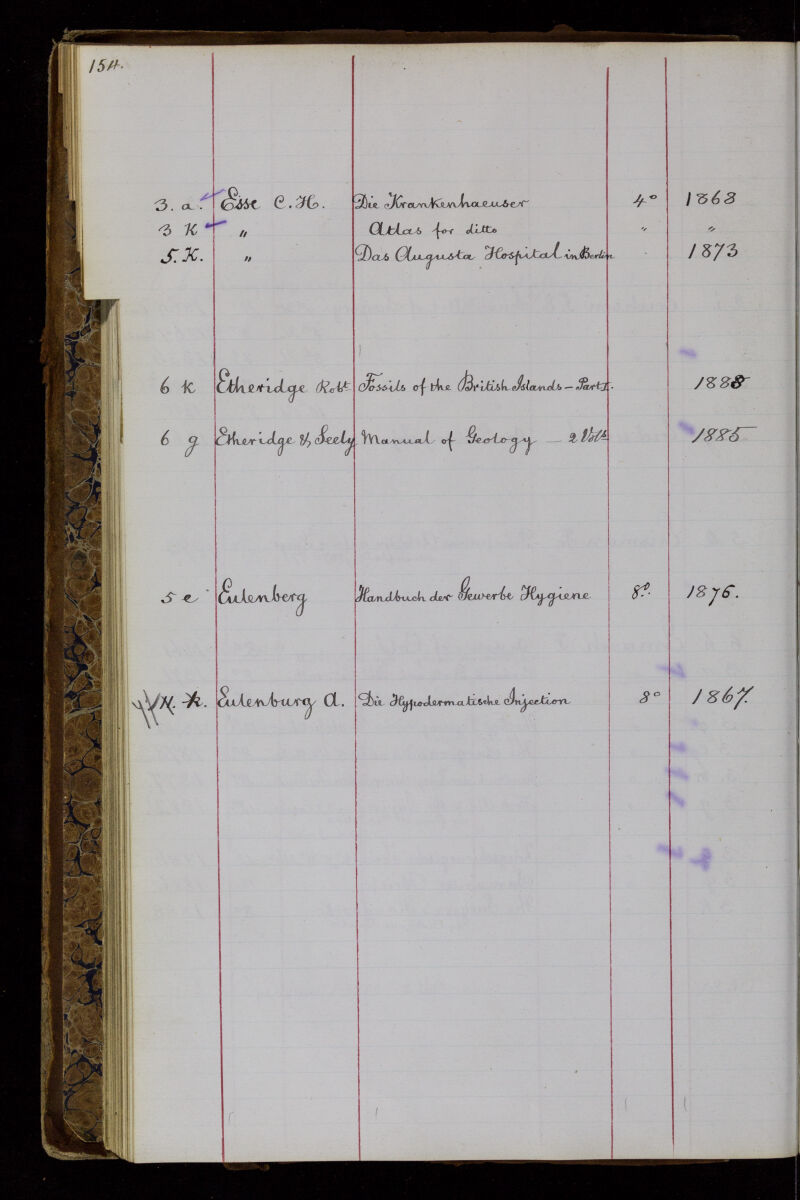 154.
3. a. Esse C. H. Die Krankenhaeuser 4° 1868
3 K " Atlas for ditto " "
5. K. " Das Augusta Hospital in Berlin 1873
6 k Etheridge Robt Fossils of the British Islands – Part I. 1888
6 g Etheridge & Seely Manual of Geology – 2 Vols 1885
5 e Eulenberg Handbuch der Gewerbe Hygiene 8º. 1876.
k. Eulenburg A. Die Hypodermatische Injection 8° 1867.